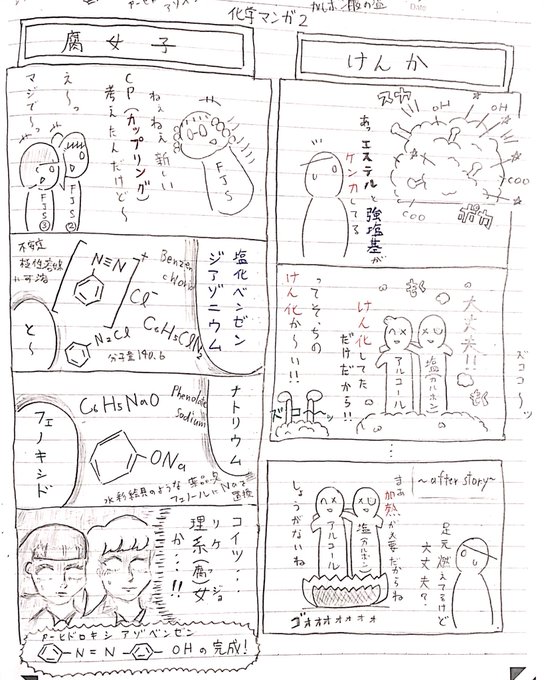 化学マンガ2
けんか
OH
COO
COO
あっエステルと強塩基が
ケンカしてる
大丈夫!!
けん化してた
だけだから!!
アルコール
塩(カルボン)
ってそっちの
けん化か〜い!!
ズコココ〜ッ
ズコーッ
〜after story〜
足元燃えてるけど
大丈夫?
塩(カルボン)
アルコール
まぁ加熱が必要だからね
しょうがないね
ゴォォォォォォ
腐女子
ねぇねぇ新しい
CP(カップリング)
考えたんだけど〜
え〜っ
マジで〜っ
FJS
FJS②
FJS③
塩化ベンゼン
ジアゾニウム
N≡N
+
Cl⁻
C6H5ClN2
N2Cl
分子量140.6
不安定
と〜
ナトリウム
フェノキシド
C6H5NaO
Phenolate
Sodium
ONa
水彩絵具のような薬品臭
フェノールにNaで
置換
コイツ・・・
理系(腐)女
リケジョ
か・・・!!
P-ヒドロキシアゾベンゼン
N=N
OHの完成!